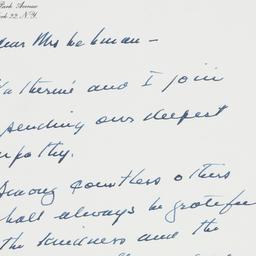 Park Avenue
rk 22, N.Y.
Dear Mrs Lehman –
Katherine and I join
sending our deepest
mpathy.
Among countless others
shall always be grateful
the kindness and the